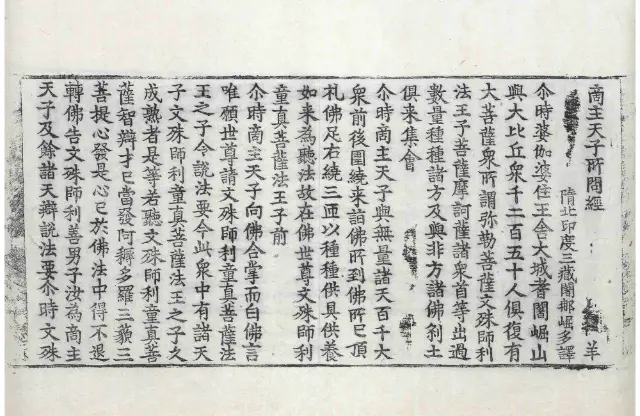 商主天子所問經 羊
隋北印度三藏闍那崛多譯
尒時婆伽婆住王舍大城耆闍崛山
與大比丘衆千二百五十人俱復有
大菩薩衆所謂弥勒菩薩文殊師利
法王子菩薩摩訶薩諸衆首等出過
數量種種諸方及與非方諸佛剎土
俱來集會
尒時商主天子與無量諸天百千大
衆前後圍繞來詣佛所到佛所已頂
礼佛足右繞三匝以種種供具供養
如來為聽法故在佛世尊文殊師利
童真菩薩法王子前
尒時商主天子向佛合掌而白佛言
唯願世尊請文殊師利童真菩薩法
王之子令說法要今此衆中有諸天
子文殊師利童真菩薩法王之子久
成熟者是等若聽文殊師利童真菩
薩智辯才已當發阿耨多羅三藐三
菩提心發是心已於佛法中得不退
轉佛告文殊師利善男子汝為商主
天子及餘諸天辯說法要尒時文殊